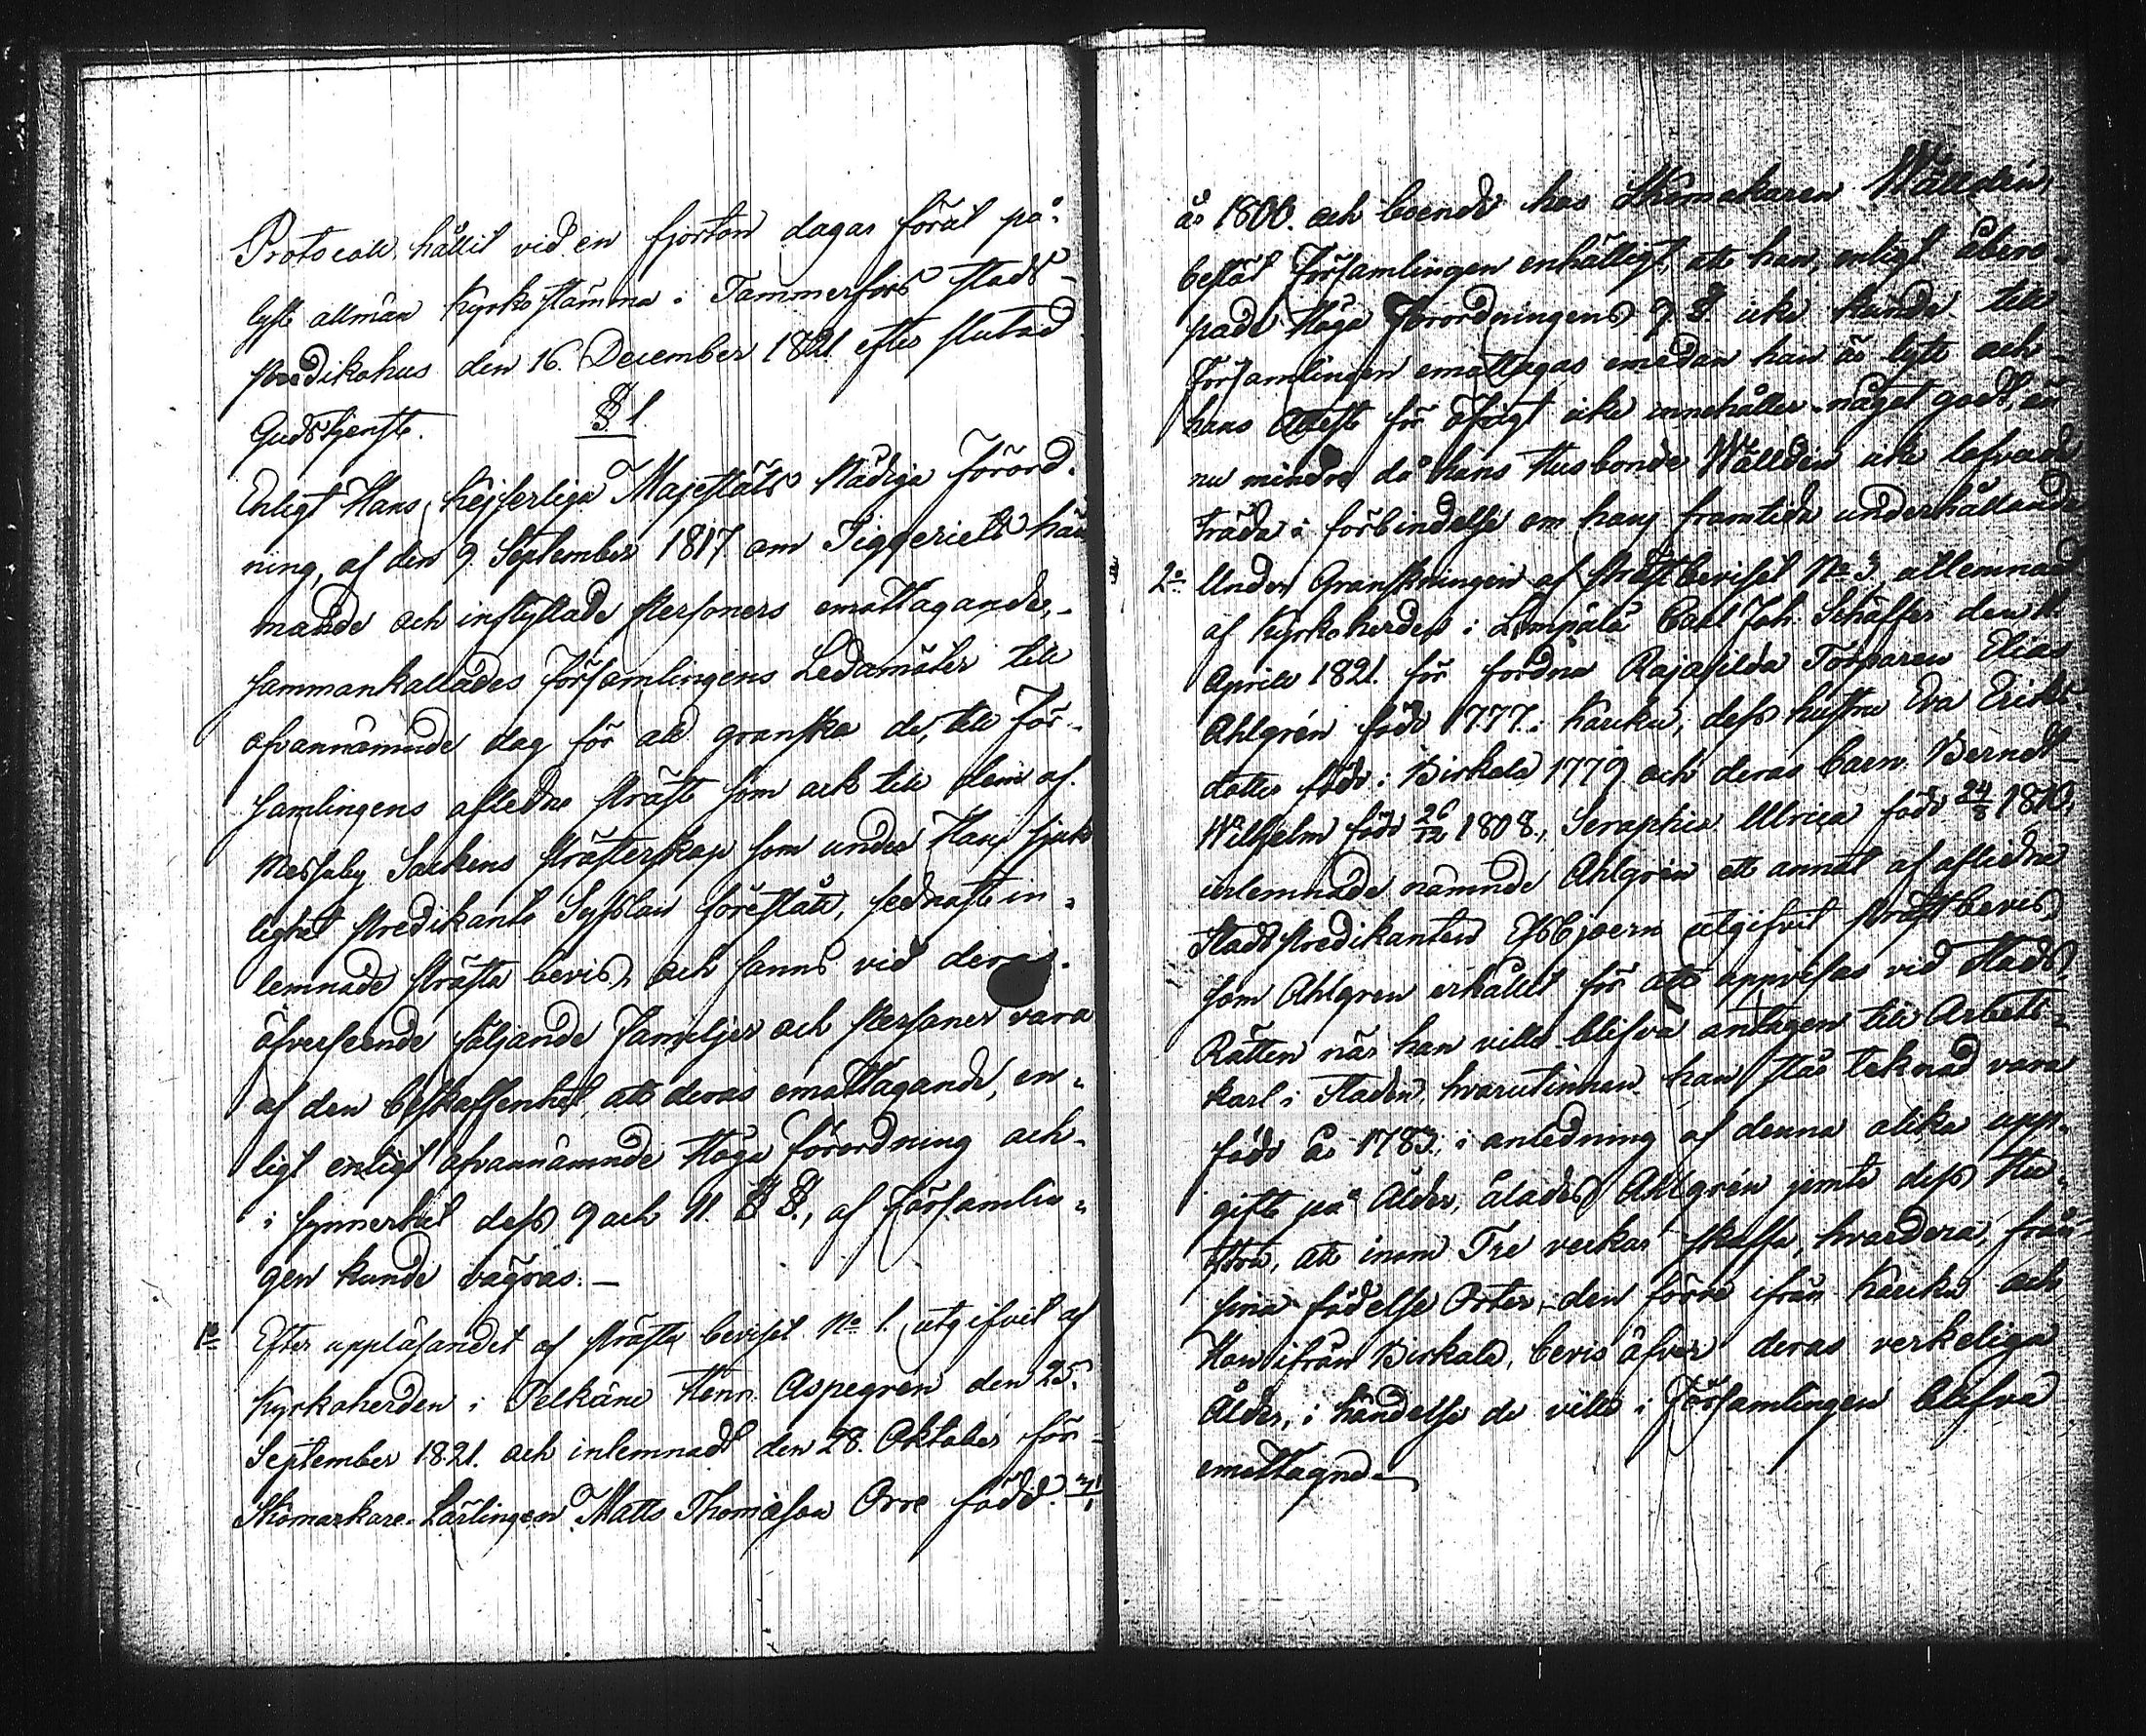 Protocoll, hållit vid en fjorton dagar förut på-
lyst allmän Kyrkostämma i Tammerfors Stads
Predikohus den 16. December 1821 efter slutad
Gudstjenst.
§ 1.
Enligt Hans Kejserliga Majestäts Nådiga Förord-
ning, af den 9 September 1817 om Tiggeriets häm
mande och inflyttade Personers emottagande,
sammankallades Församlingens Ledamöter till
ofvannämnde dag för att granska de, till För-
samlingens aflidne Präst som ock till dem af
Messuby Sockens Prästerskap som under Hans sjuk
lighet Predikants Sysslan förestått, sednast in-
lemnade Prästa bevis, och fanns vid deras
öfverseende följande Familjer och Personer vara
af den beskaffenhet, att deras emottagande, en-
ligt enligt ofvannämnde Höga förordning och
i synnerhet dess 9 och 11. §§., af Församlin-
gen kunde vägras.—
1o Efter uppläsandet af Prästa beviset No 1. utgifvit af
Kyrkoherden i Pelkäne Henr. Aspegren den 25.
September 1821. och inlemnadt den 28. Oktober för
Skomarkare-Lärlingen Matts Thomasson Orre född
år 1800. och boende hos Skomakaren Wälldén,
beslöt Församlingen enhälligt, att han, enligt åbero-
pade Höga Förordningens 9 § icke kunde till
Församlingen emottagas emedan han är lyte och
hans Attest för öfrigt icke innehåller något godt, än
nu mindre då hans Husbonde Wälldén icke lofvade
träda i förbindelse om hans framtida underhållande
2o Under Granskningen af Prästbeviset No 3, allemnad
af Kyrkoherden i Lempälä Carl Joh. Schäffer den 11
Aprill 1821. för fordna Rajasilda Torparen Elias
Ahlgrén född 1777. i Kauku, dess hustru Eva Eriks
dotter född i Birkala 1779 och deras barn Berndt
Wilhelm född 26/12 1808., Seraphia Ulrica född 24/8 1810,
inlemnade nämnde Ahlgrén ett annat af aflidne
StadsPredikanten Essbjoern utgifvit Prästbevis,
som Ahlgren erhållit för att uppvisas vid Stads
Rätten när han ville blifva antagen till Arbets-
karl i Staden, hvarutinnan han står teknad vara
född år 1783., i anledning af denna olika upp-
gift på Ålder, ålades Ahlgrén jemte dess Hu-
stru, att inom Tre veckor skaffa, hvardera, från
sina födelse Orter, den förre ifrån Kauku och
Hon ifrån Birkala, bevis öfver deras verkeliga
Ålder, i händelse de ville i Församlingen blifva
emottagne.—